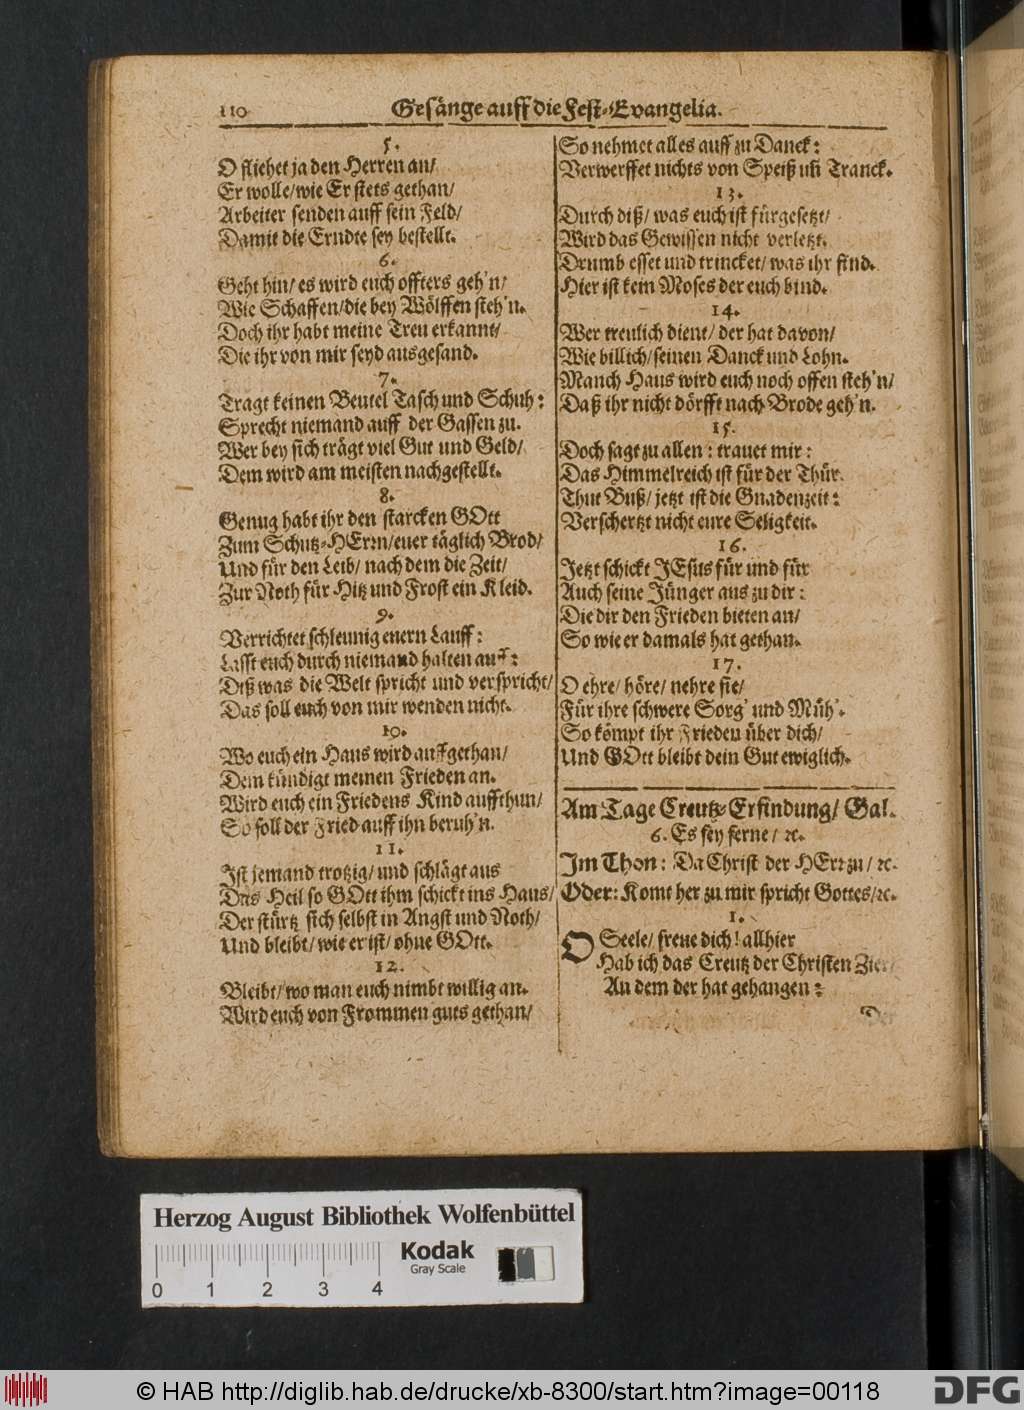 110 Gesänge auff die Fest-Evangelia.
5.
O fliehet ja den Herren an/
Er wolle/ wie Er stets gethan/
Arbeiter senden auff sein Feld/
Damit die Erndte sey bestellt.
6.
Geht hin/ es wird euch offters geh'n/
Wie Schaffen/ die bey Wölffen steh'n.
Doch ihr habt meine Treu erkannt/
Die ihr von mir seyd ausgesand.
7.
Tragt keinen Beutel Tasch und Schuh:
Sprecht niemand auff der Gassen zu.
Wer bey sich trägt viel Gut und Geld/
Dem wird am meisten nachgestellt.
8.
Genug habt ihr den starcken GOtt
Zum Schutz-HErrn/ euer täglich Brod/
Und für den Leib/ nach dem die Zeit/
Zur Noth für Hitz und Frost ein Kleid.
9.
Verrichtet schleunig euern Lauff:
Lasst euch durch niemand halten auff:
Diß was die Welt spricht und verspricht/
Das soll euch von mir wenden nicht.
10.
Wo euch ein Haus wird auffgethan/
Dem kündigt meinen Frieden an.
Wird euch ein Friedens Kind auffthun/
So soll der Fried auff ihn beruh'n.
11.
Ist jemand trotzig/ und schlägt aus
Das Heil so GOtt ihm schickt ins Haus/
Der stürtz sich selbst in Angst und Noth/
Und bleibt/ wie er ist/ ohne GOtt.
12.
Bleibt/ wo man euch nimbt willig an.
Wird euch von Frommen guts gethan/
So nehmet alles auff zu Danck:
Verwerffet nichts von Speiß uñ Tranck.
13.
Durch diß/ was euch ist fürgesetzt/
Wird das Gewissen nicht verletzt.
Drumb esset und trincket/ was ihr find.
Hier ist kein Moses der euch bind.
14.
Wer treulich dient/ der hat davon/
Wie billich/ seinen Danck und Lohn.
Manch Haus wird euch noch offen steh'n/
Daß ihr nicht dörfft nach Brode geh'n.
15.
Doch sagt zu allen: trauet mir:
Das Himmelreich ist für der Thür.
Thut Buß/ jetzt ist die Gnadenzeit:
Verschertzt nicht eure Seligkeit.
16.
Jetzt schickt JEsus für und für
Auch seine Jünger aus zu dir:
Die dir den Frieden bieten an/
So wie er damals hat gethan.
17.
O ehre/ höre/ nehre sie/
Für ihre schwere Sorg' und Müh'.
So kömpt ihr Frieden über dich/
Und GOtt bleibt dein Gut ewiglich.
Am Tage Creutz-Erfindung/ Gal.
6. Es sey ferne/ ꝛc.
Im Thon: Da Christ der HErr zu/ ꝛc.
Oder: Komt her zu mir spricht Gottes/ ꝛc.
1.
O Seele/ freue dich! allhier
Hab ich das Creutz der Christen Zier/
An dem der hat gehangen:
Der
Herzog August Bibliothek Wolfenbüttel
Kodak
Gray Scale
0 1 2 3 4
© HAB http://diglib.hab.de/drucke/xb-8300/start.htm?image=00118
DFG